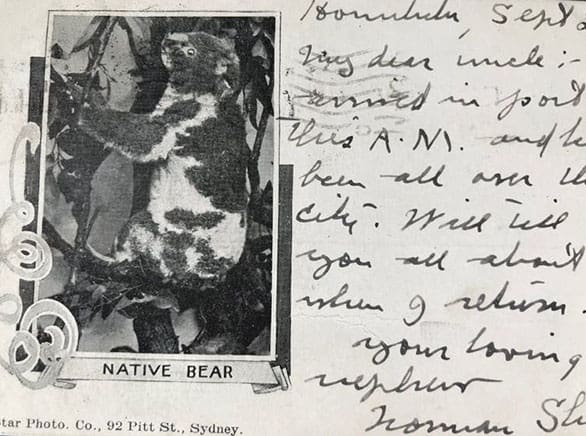 Honolulu, Sept
My dear uncle :-
arrived in port
this A.M. and
been all over
city. Will tell
you all about
when I return.
your loving
nephew
Norman
NATIVE BEAR
Star Photo. Co., 92 Pitt St., Sydney.